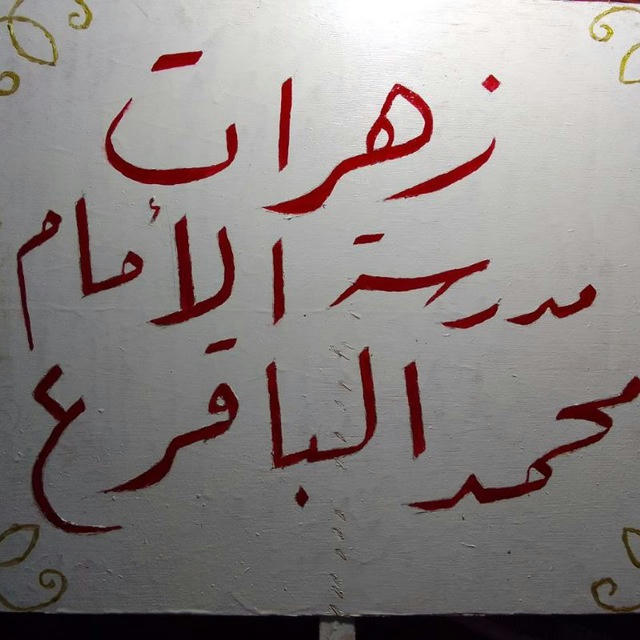 زهرات
مدرسة الأمام
محمد الباقر ع